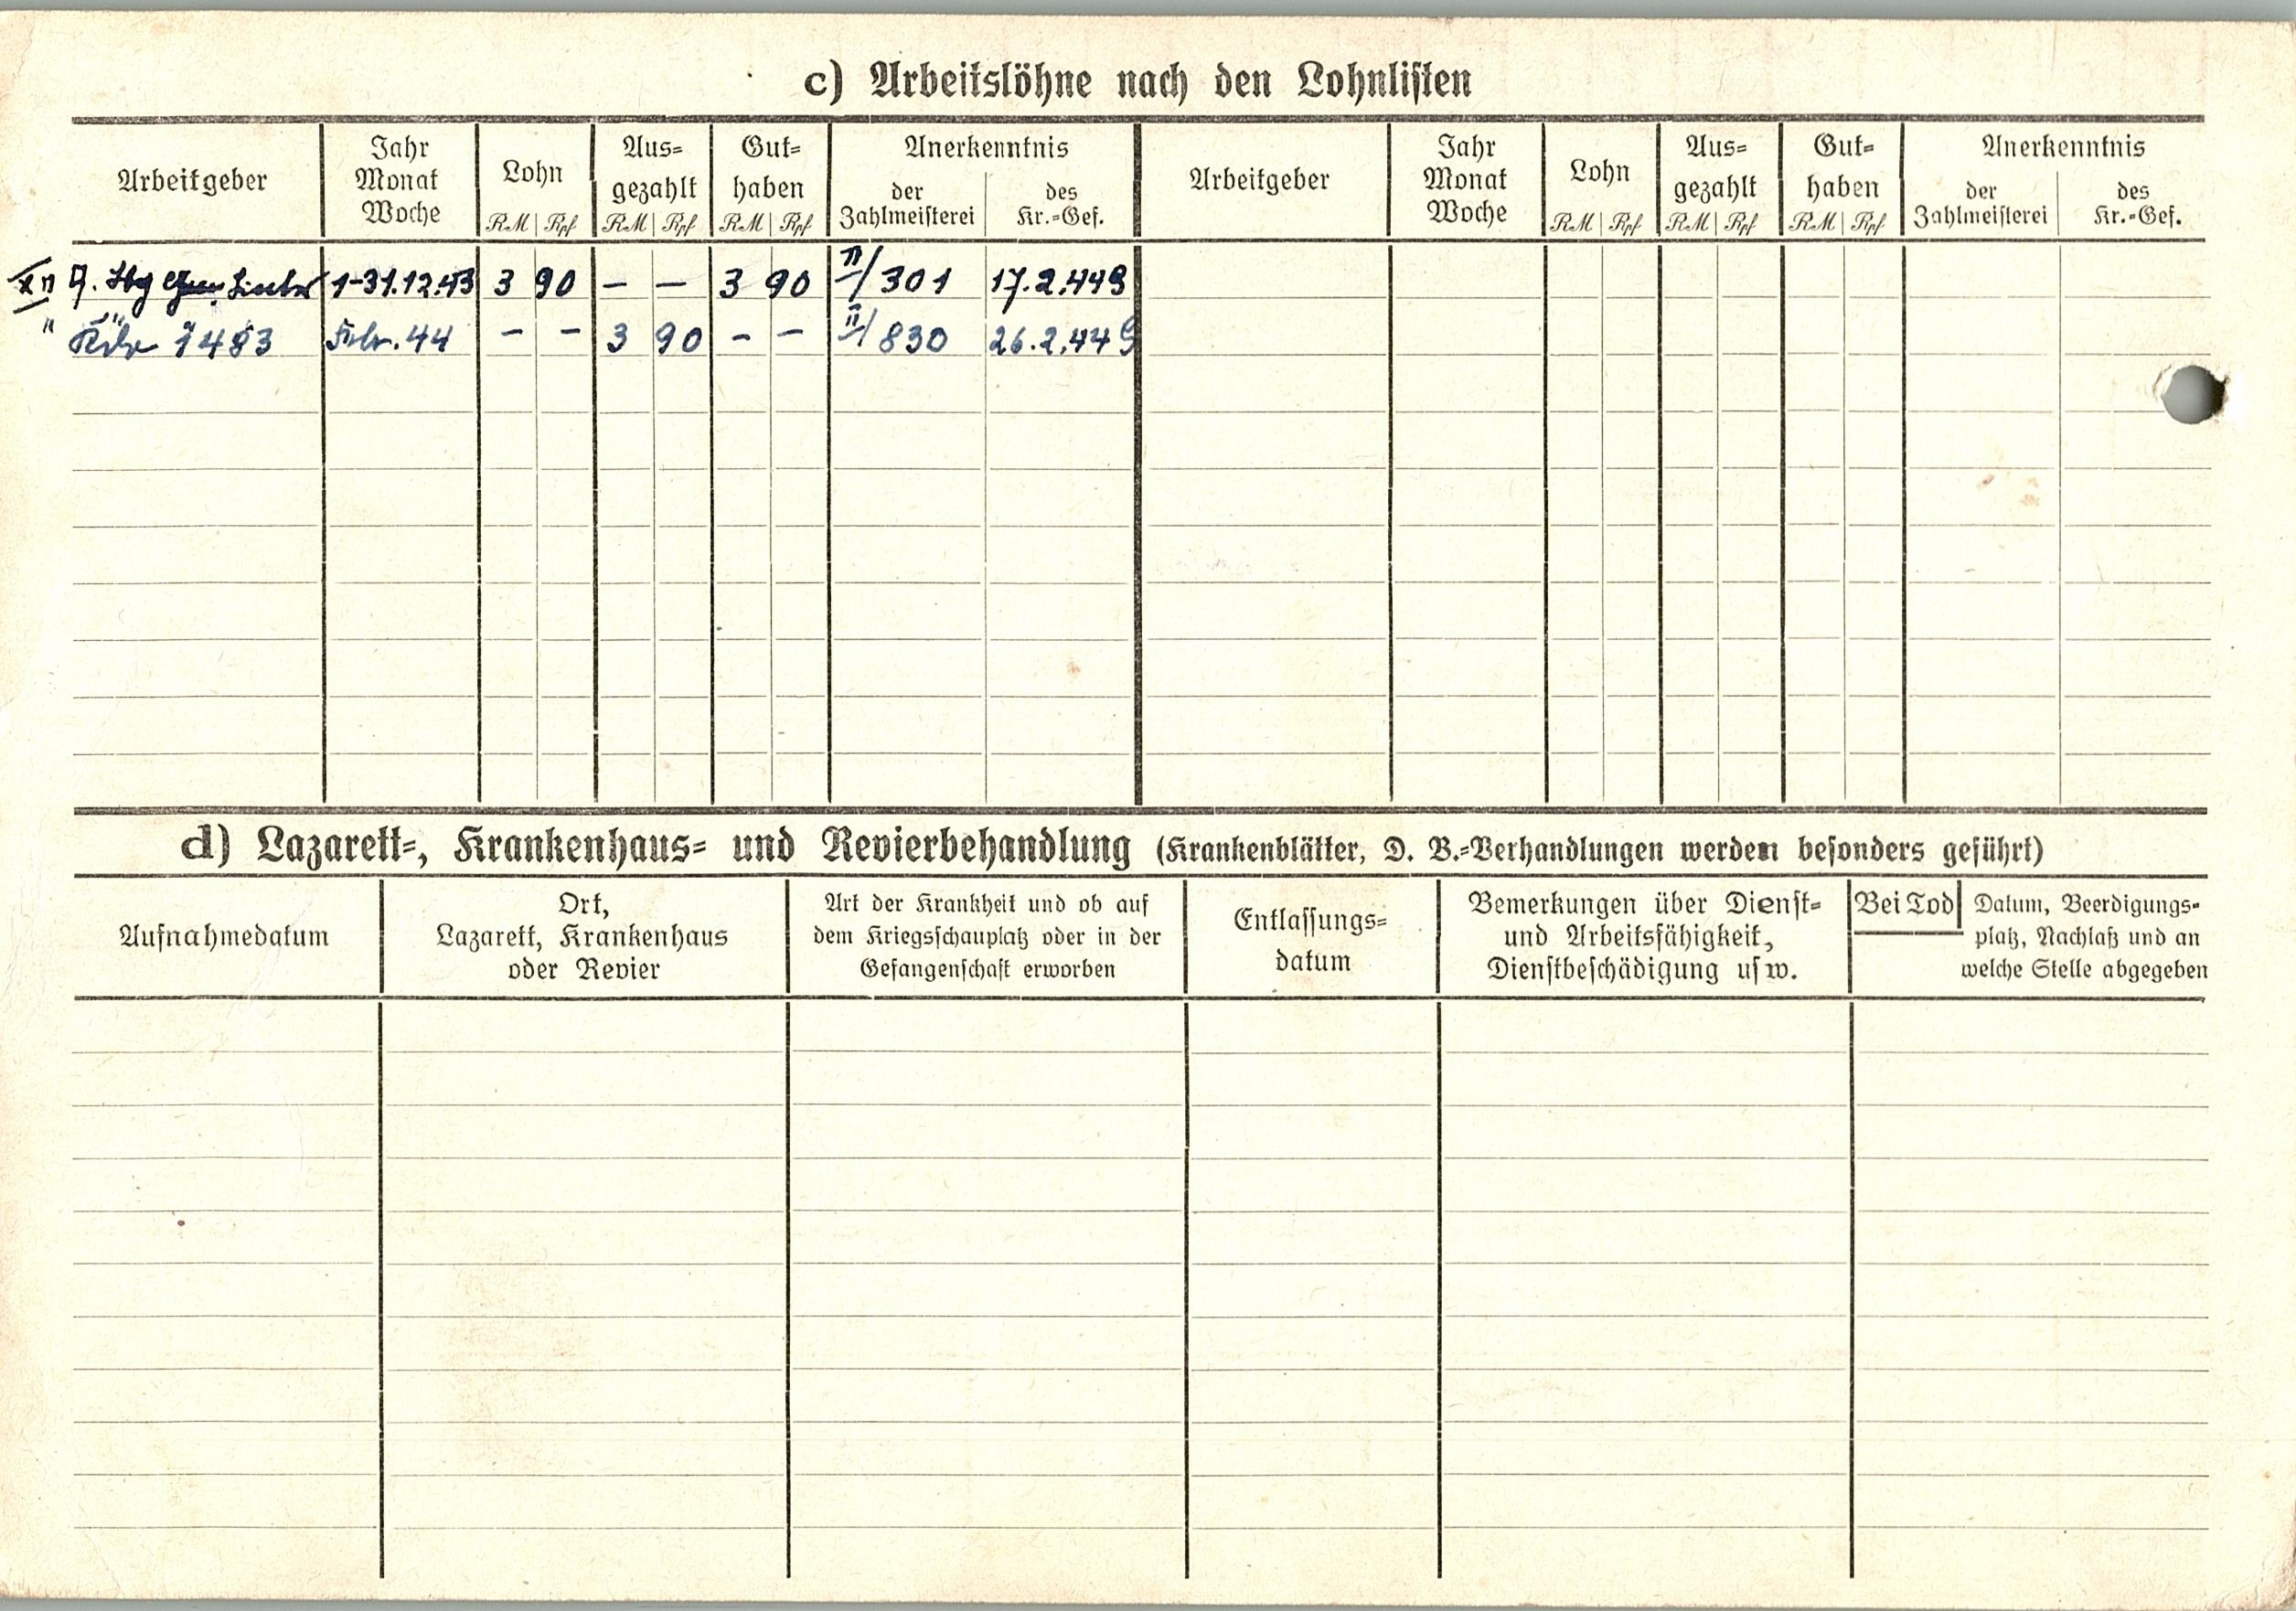 c) Arbeitslöhne nach den Lohnlisten
Arbeitgeber
Jahr
Monat
Woche
Lohn
RM | Rpf
Aus-
gezahlt
RM | Rpf
Gut-
haben
RM | Rpf
Anerkenntnis
der
Zahlmeisterei
des
Kr.-Gef.
Arbeitgeber
Jahr
Monat
Woche
Lohn
RM | Rpf
Aus-
gezahlt
RM | Rpf
Gut-
haben
RM | Rpf
Anerkenntnis
der
Zahlmeisterei
des
Kr.-Gef.
1-31.12.43 3 90 — — 3 90 II/301 17.2.44
" 1483 Febr. 44 - - 3 90 - - II/830 26.2.44
d) Lazarett-, Krankenhaus- und Revierbehandlung (Krankenblätter, D. B.-Verhandlungen werden besonders geführt)
Aufnahmedatum
Ort,
Lazarett, Krankenhaus
oder Revier
Art der Krankheit und ob auf
dem Kriegsschauplatz oder in der
Gefangenschaft erworben
Entlassungs-
datum
Bemerkungen über Dienst-
und Arbeitsfähigkeit,
Dienstbeschädigung usw.
Bei Tod
Datum, Beerdigungs-
platz, Nachlaß und an
welche Stelle abgegeben